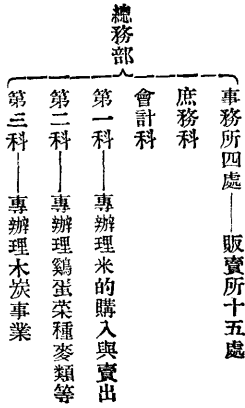 總務部
事務所四處——販賣所十五處
庶務科
會計科
第一科——專辦理米的購入與賣出
第二科——專辦理鷄蛋菜種麥類等
第三科——專辦理木炭事業